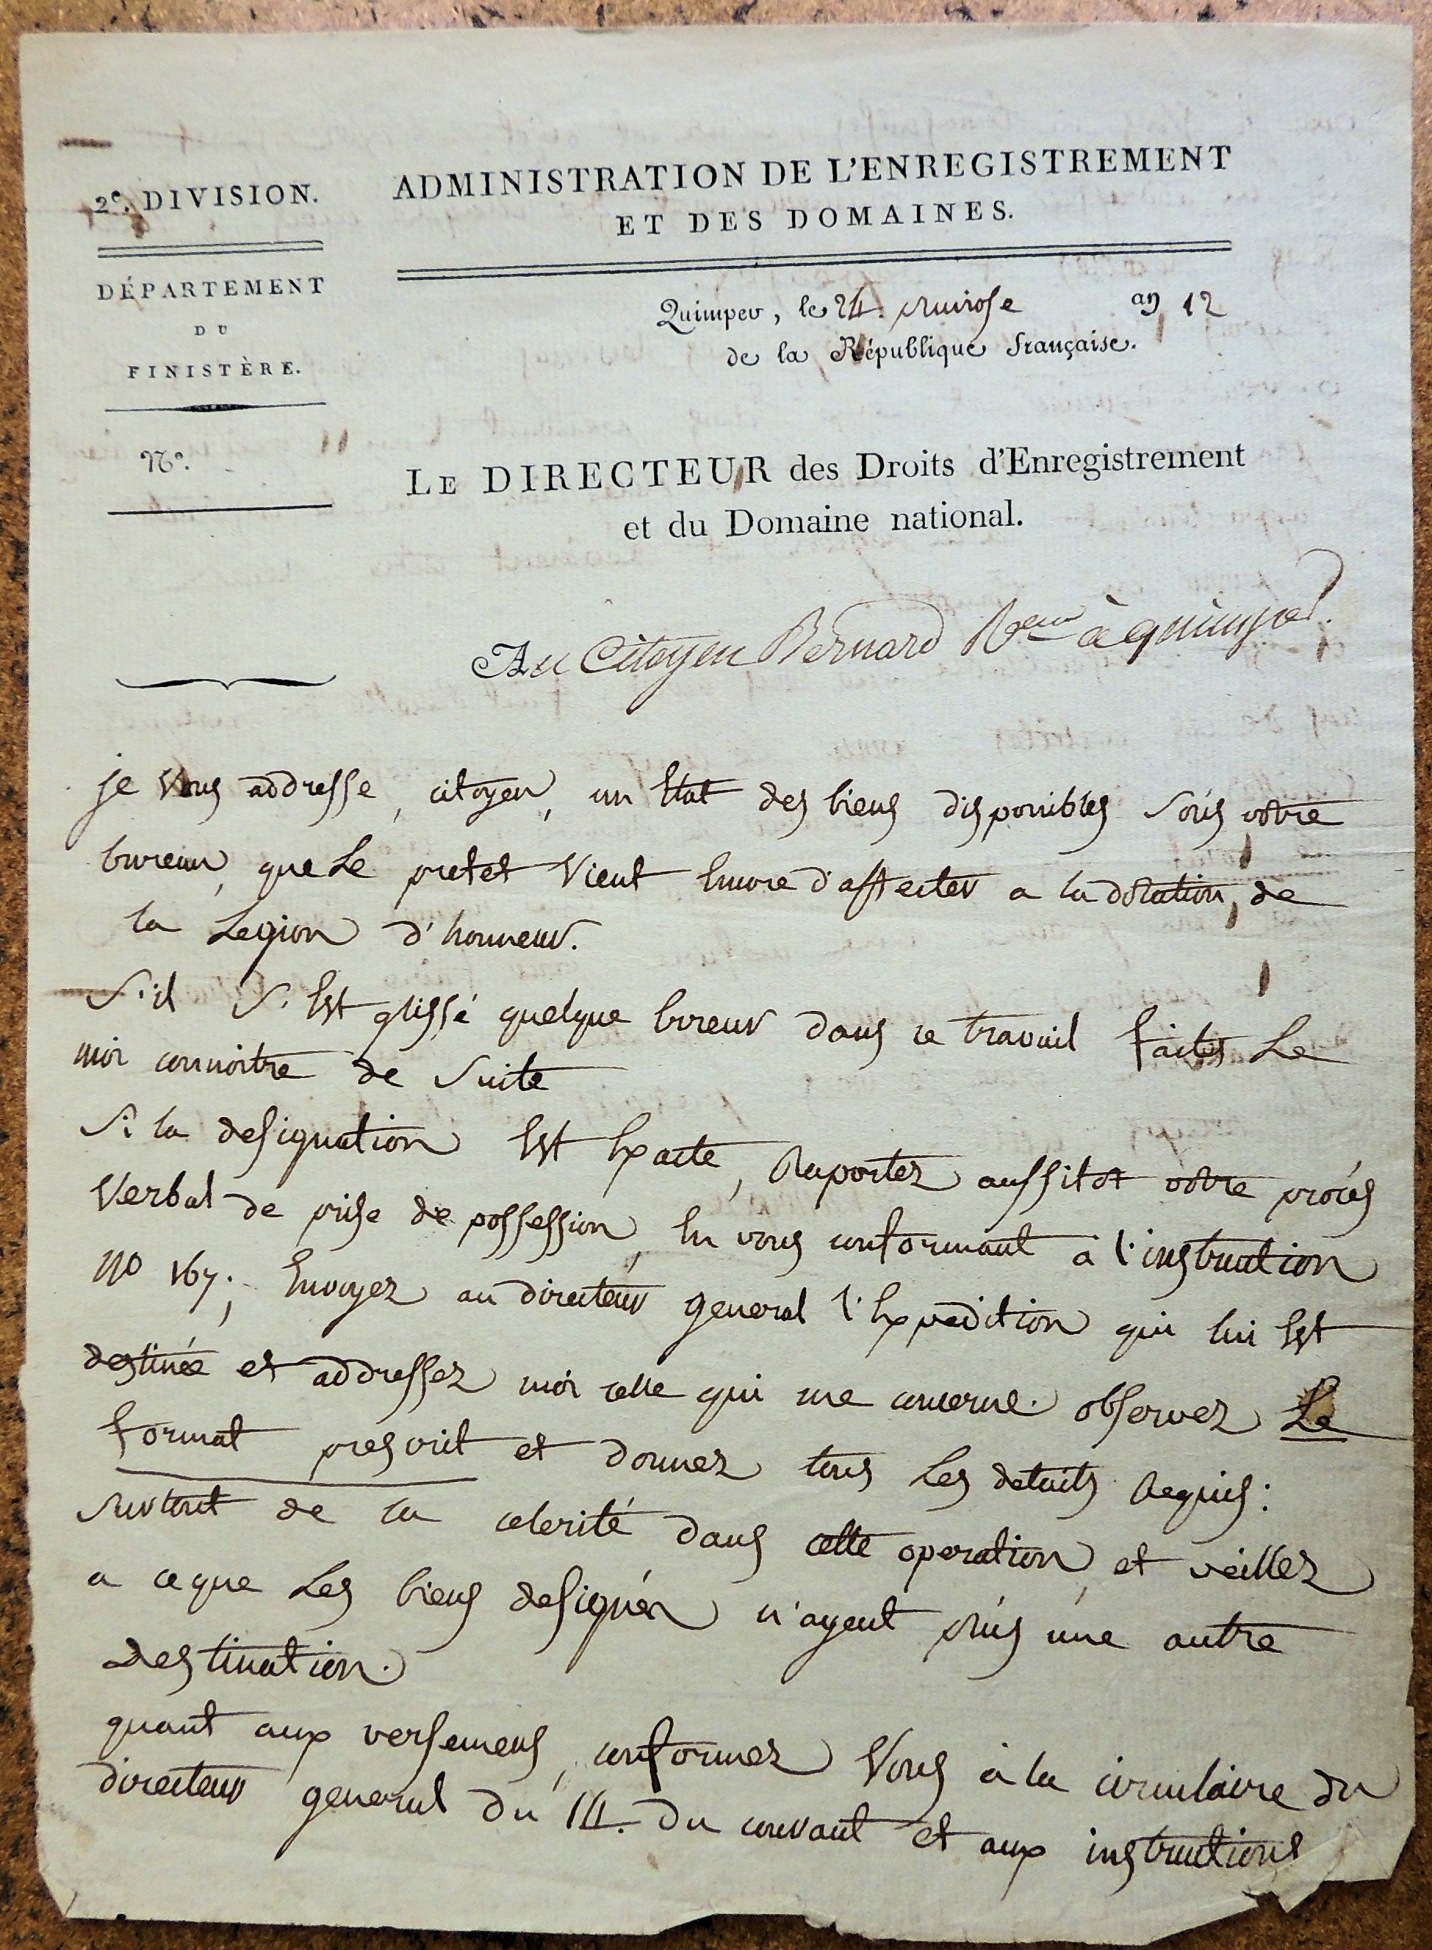 2e. DIVISION.
DÉPARTEMENT
DU
FINISTÈRE.
No.
ADMINISTRATION DE L'ENREGISTREMENT
ET DES DOMAINES.
Quimper, le 24. nivose an 12
de la République française.
LE DIRECTEUR des Droits d'Enregistrement
et du Domaine national.
Au Citoyen Bernard Reveur à quimper.
je vous addresse, citoyen, un Etat des biens disponibles sous votre
bureau, que Le prefet vient Encore d'affecter a la dotation, de
la Legion d'honneur.
S'il s'Est glissé quelque Erreur dans ce travail faites Le
moi connoitre de suite
Si la designation Est Exacte, Raportez aussitot votre procés
verbal de prise de possession, En vous conformant à l'instruction
no 167; Envoyez au directeur general l'Expedition qui lui Est
destinée et addressez moi celle qui me concerne. observez Le
format prescrit et donnez tous Les details Requis:
surtout de la celerité dans cette operation et veillez
a ceque Les biens designés n'ayent plus une autre
Destination.
quant aux versemens, conformez vous à la circulaire du
directeur general du 14. du courant et aux instructions